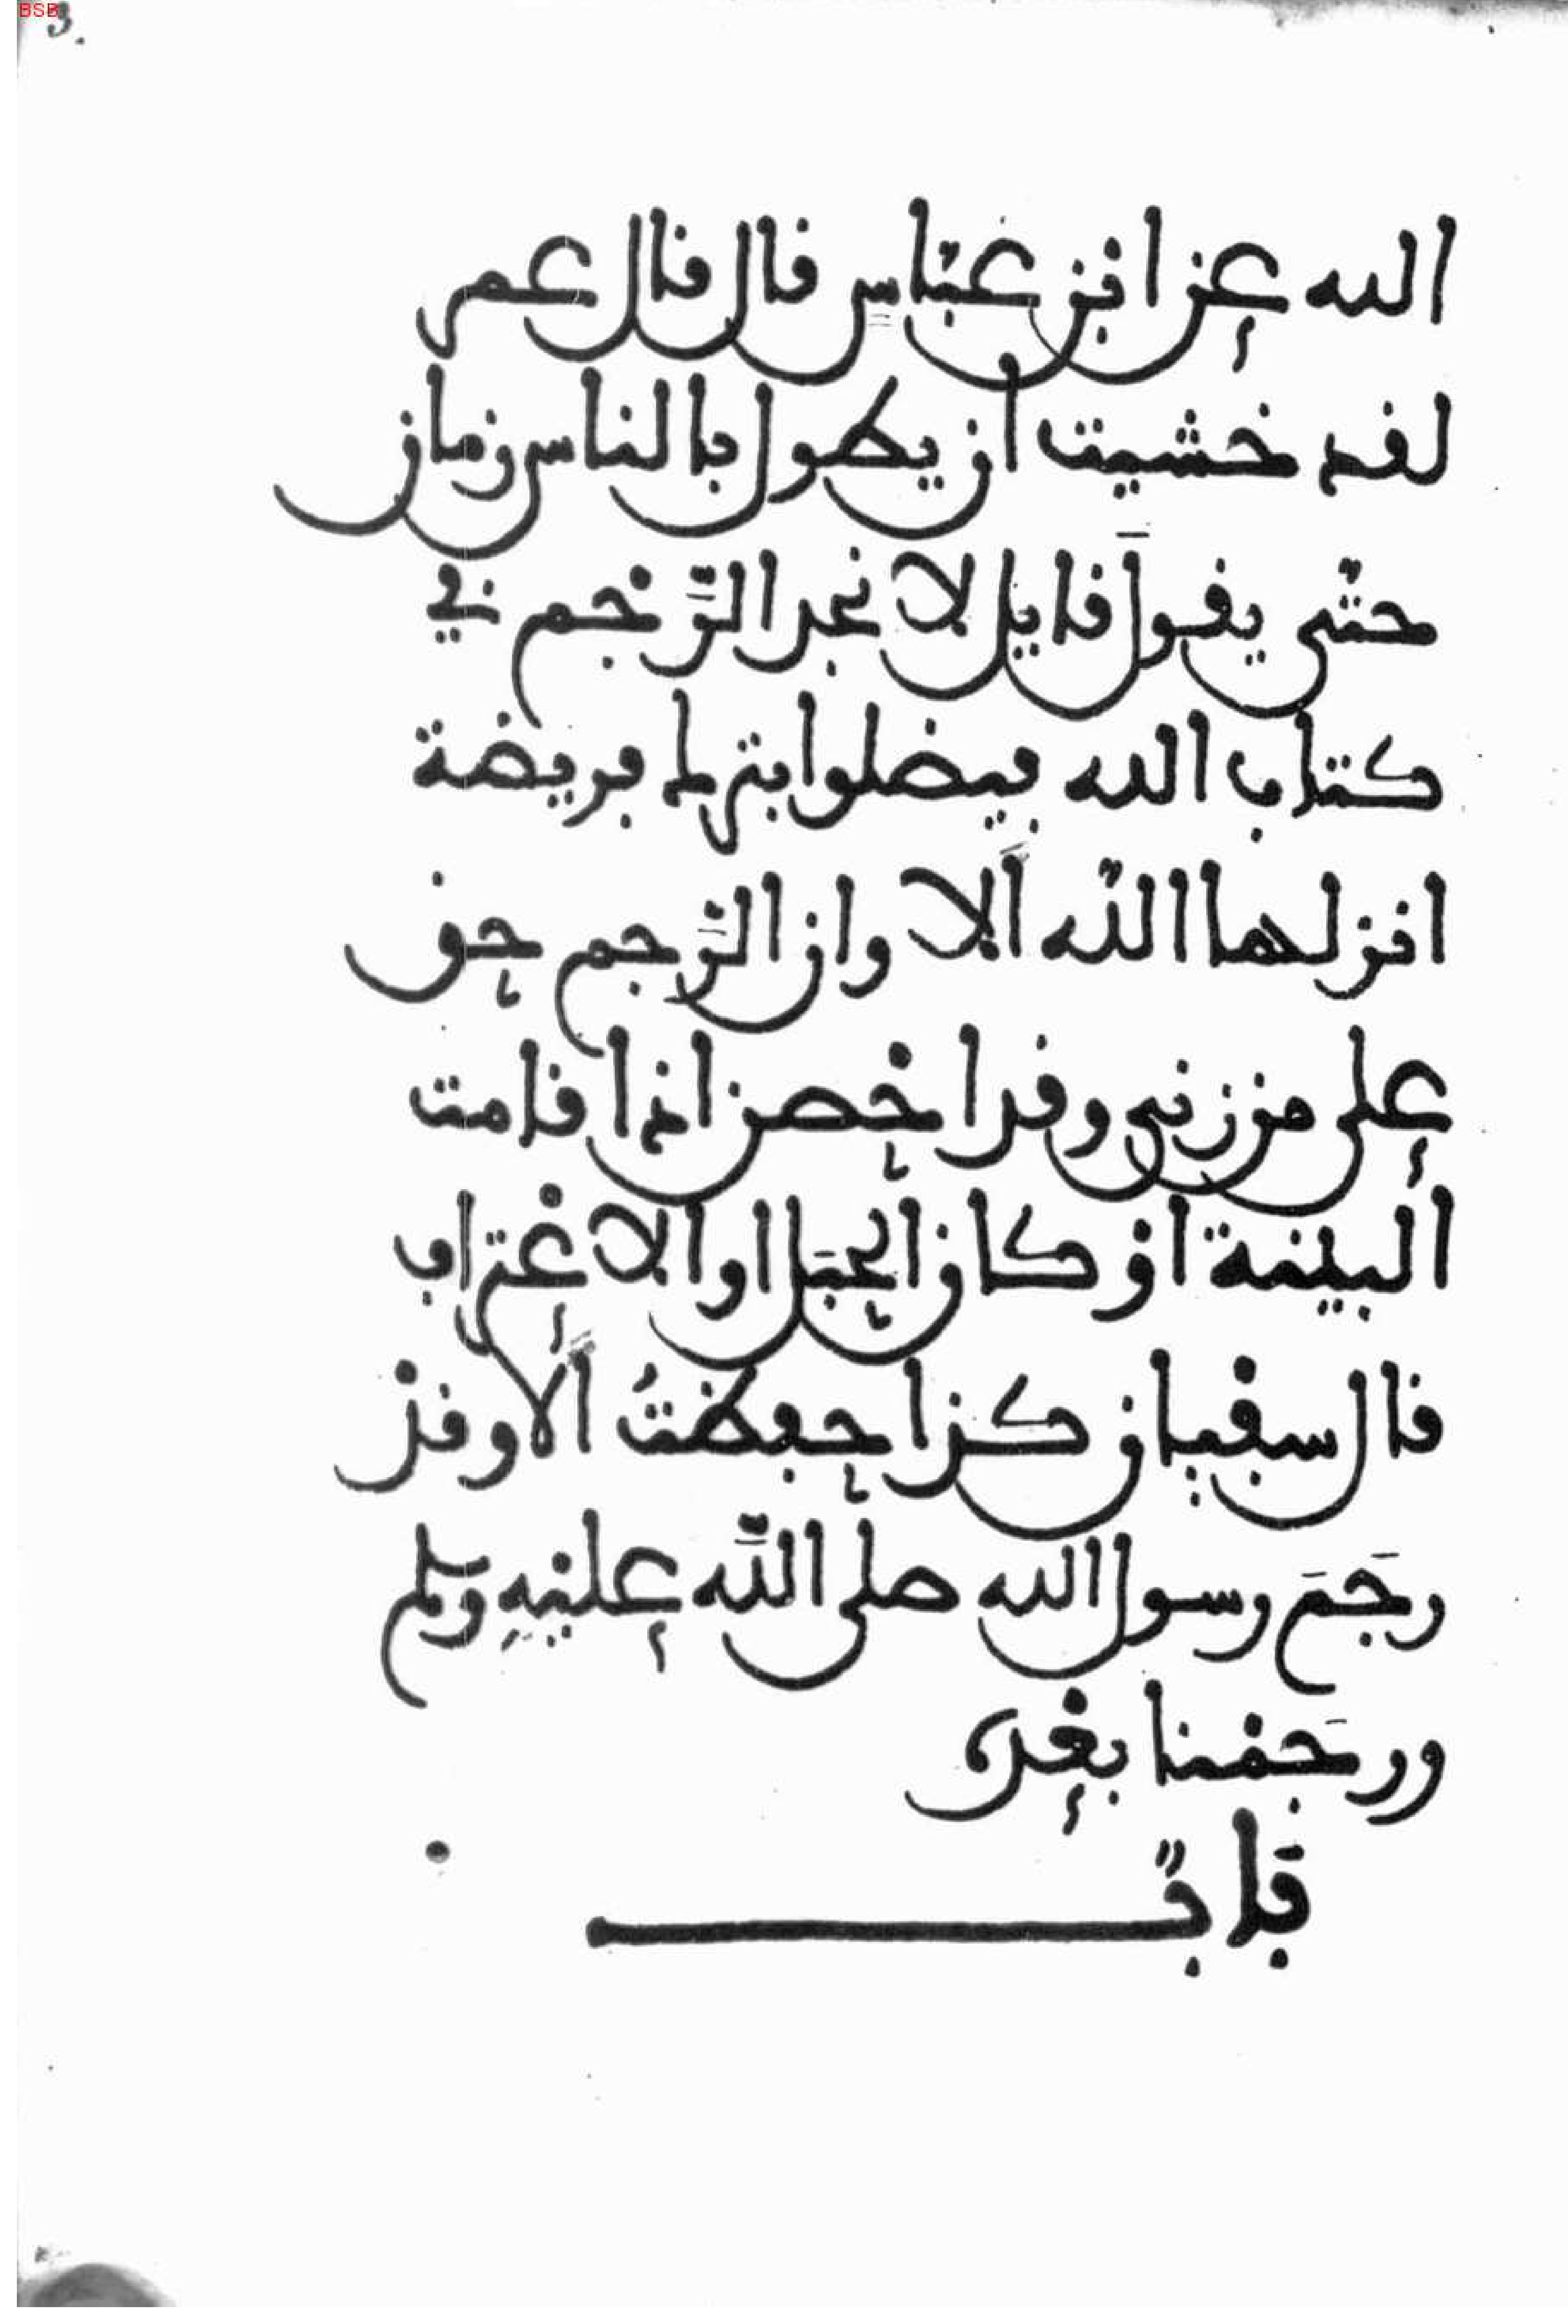 BSB
3.
الله عن ابن عباس قال قال عمر
لقد خشيت ان يطول بالناس زمان
حتى يقول قايل لا نجد الرجم في
كتاب الله فيضلوا بترك فريضة
انزلها الله الا وان الرجم حق
على من زنى وقد احصن اذا قامت
البينة او كان الحبل او الاعتراف
قال سفيان كذا حفظت الا وقد
رجم رسول الله صلى الله عليه وسلم
ورجمنا بعده
باب